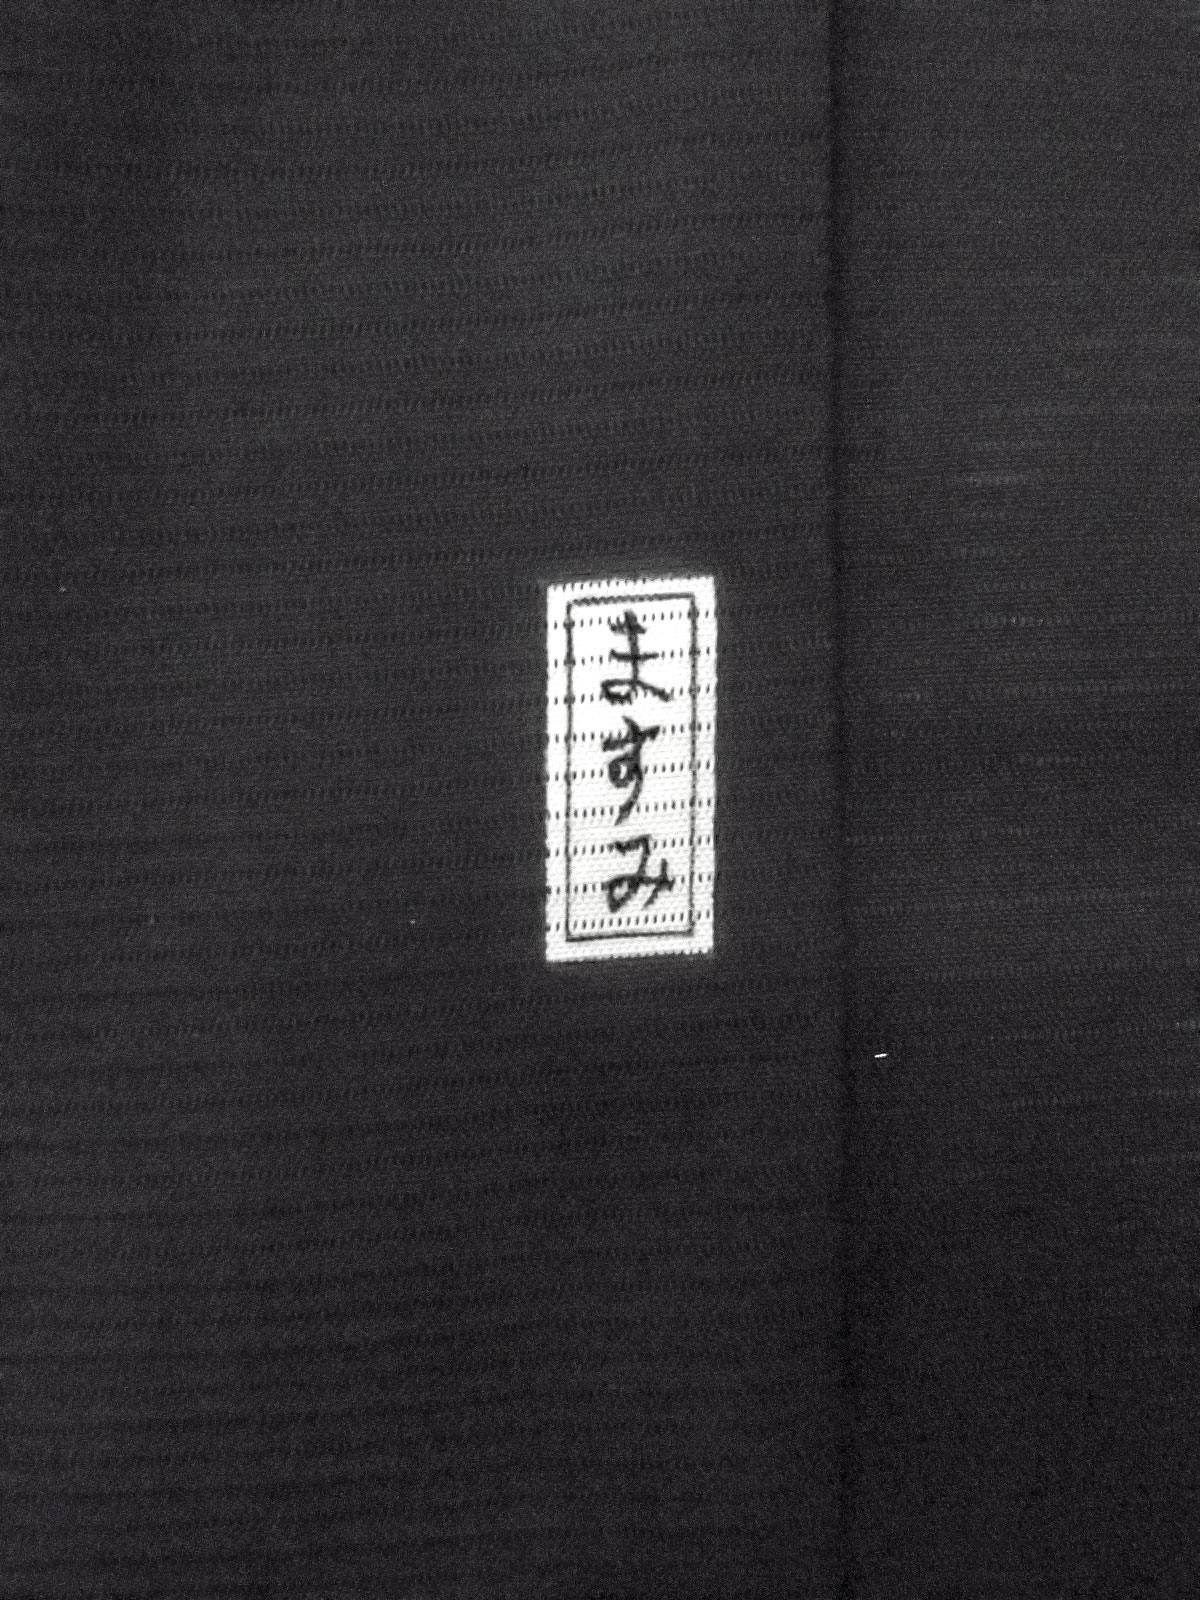 ますみ